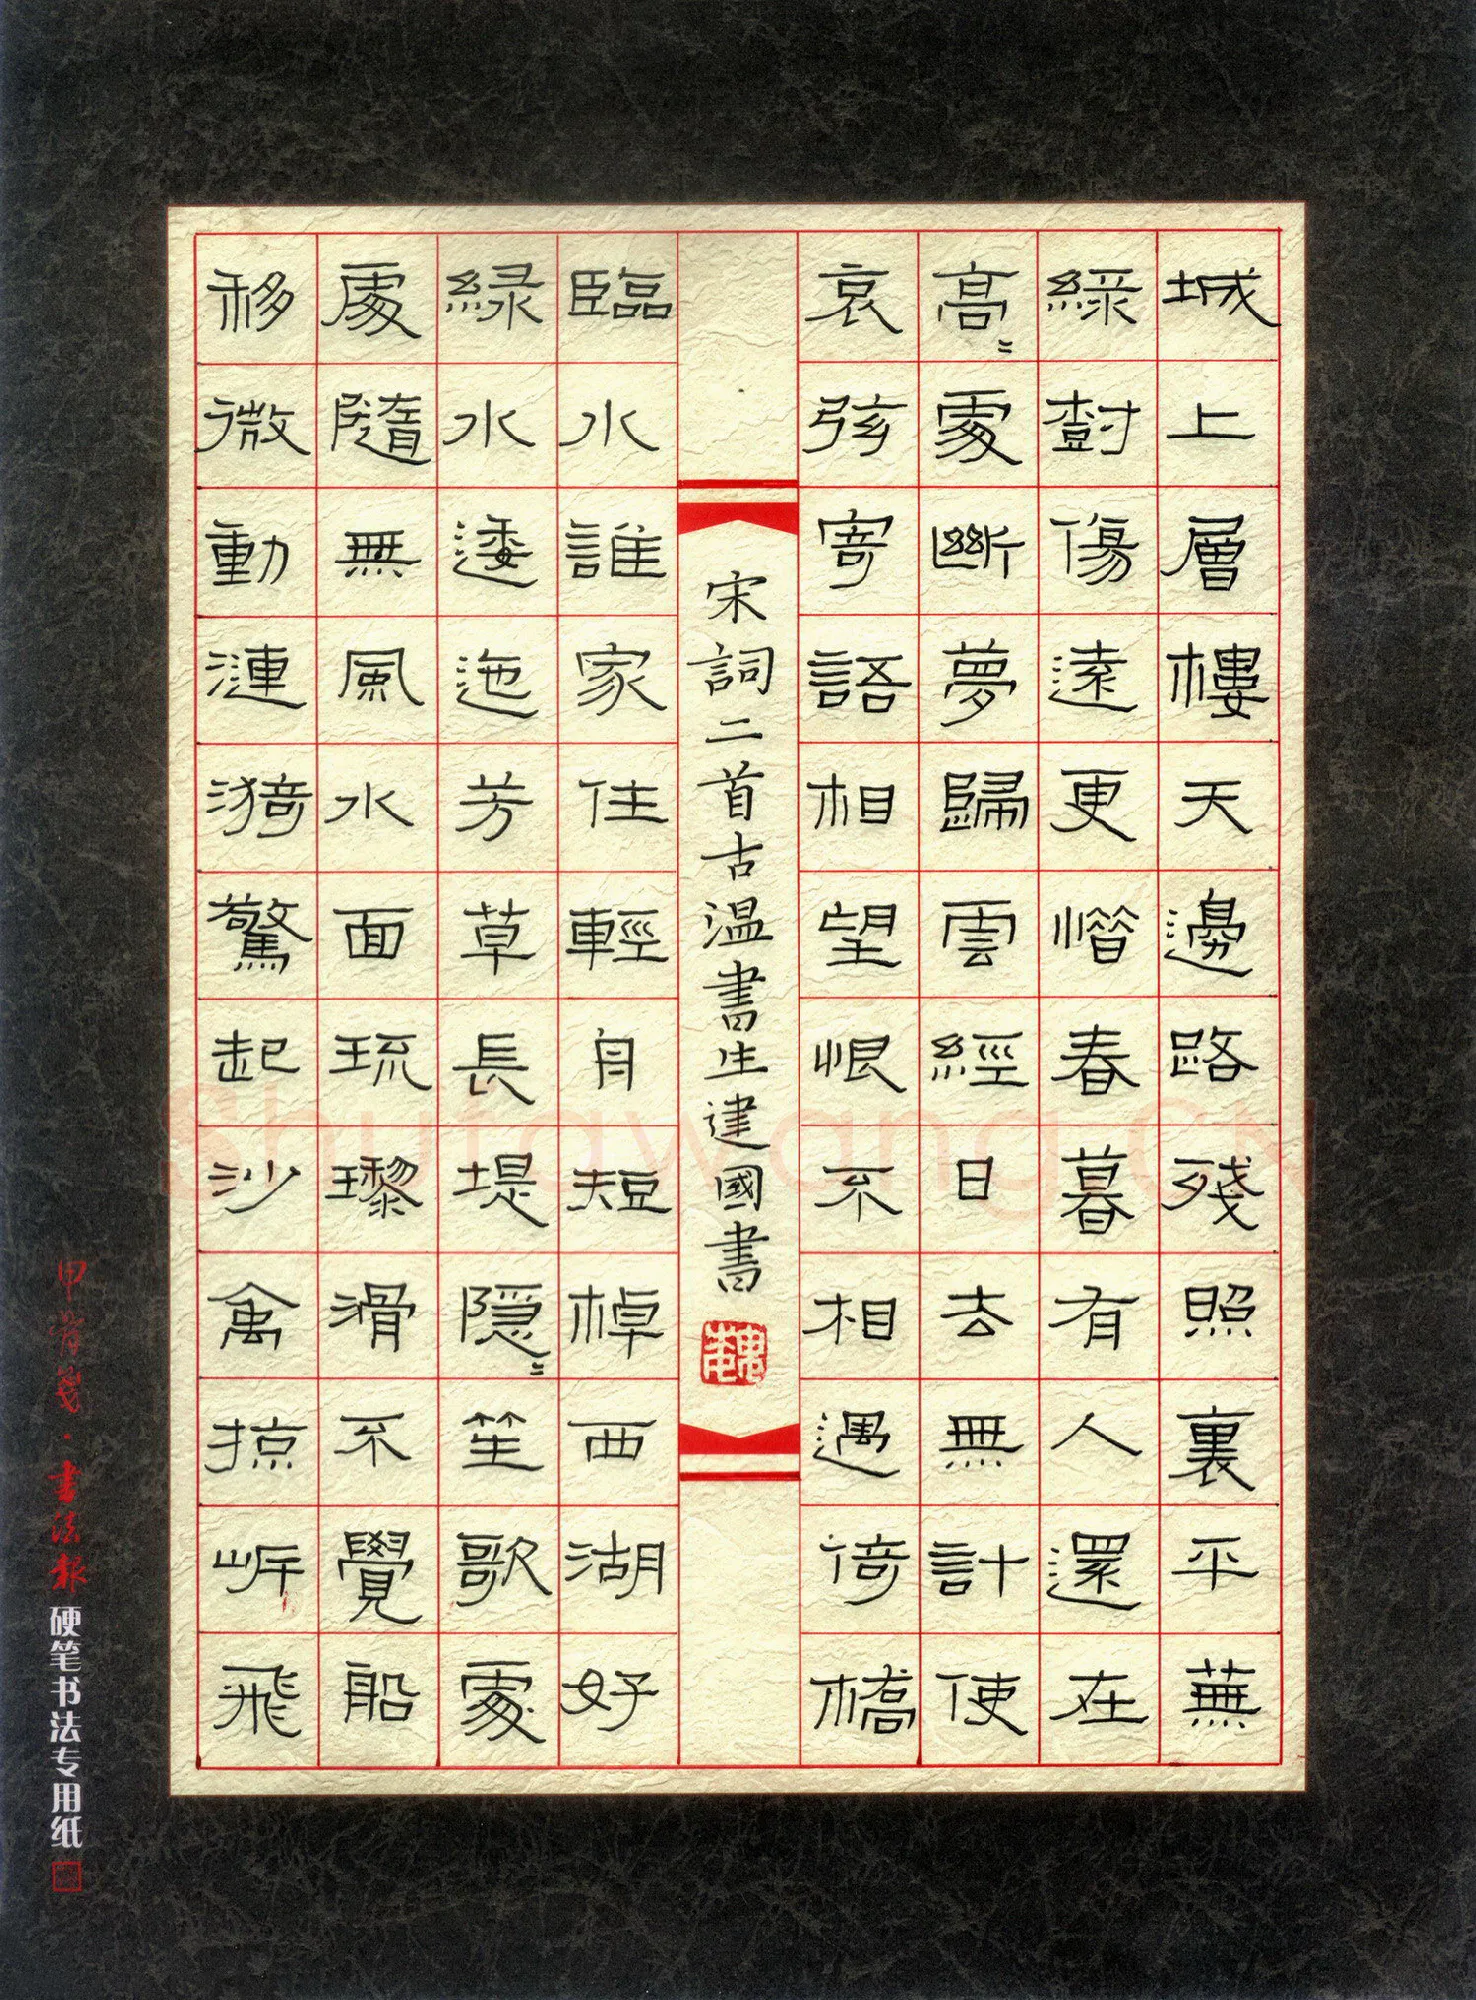 城上層樓天邊路殘照裏平蕪
綠樹傷遠更惜春暮有人還在
高〻處斷夢歸雲經日去無計使
哀弦寄語相望恨不相遇倚橋
宋詞二首古温書生建國書
臨水誰家住輕舟短棹西湖好
緑水逶迤芳草長堤隱〻笙歌處
處隨無風水面琉璃滑不覺船
移微動漣漪驚起沙禽掠岸飛
甲骨箋·書法報硬笔书法专用纸
Shufawang.CN